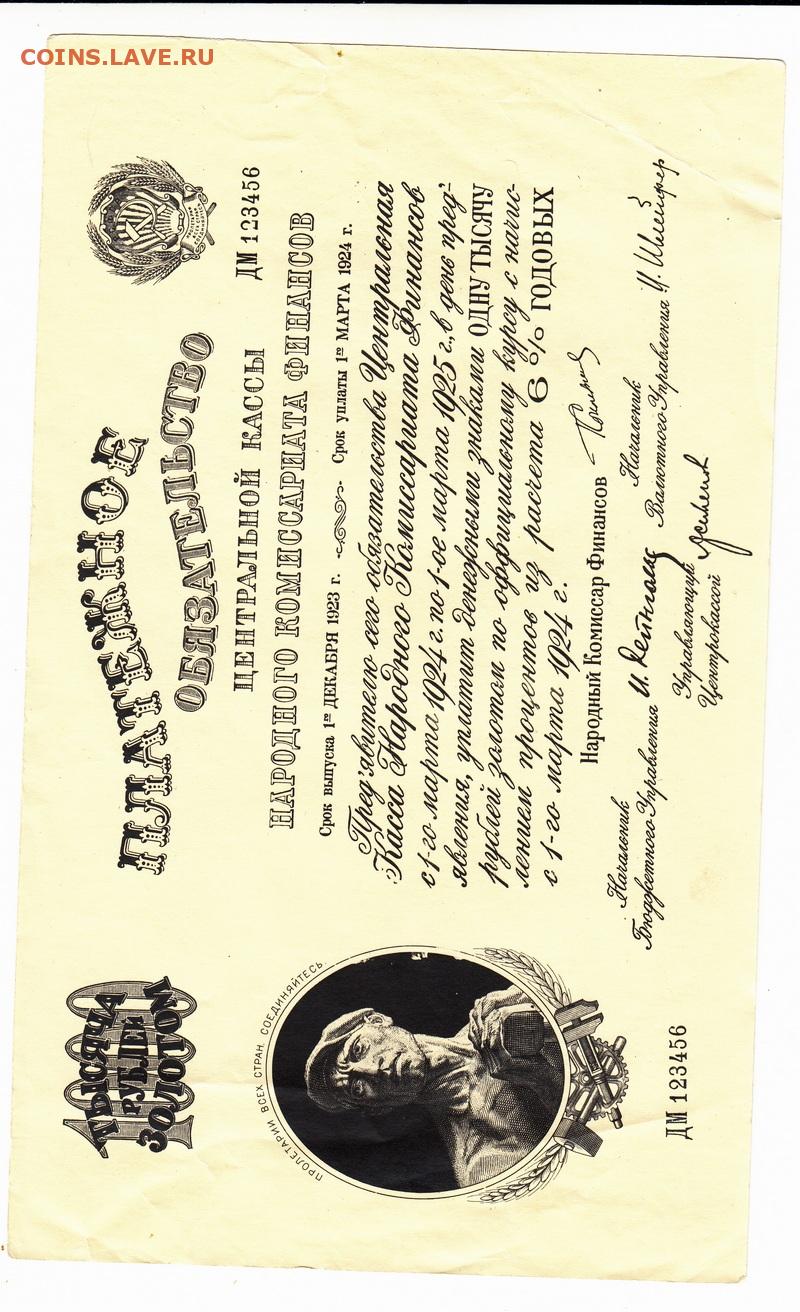 COINS.LAVE.RU
1000
ТЫСЯЧА
РУБЛЕЙ
ЗОЛОТОМ
ПЛАТЕЖНОЕ
ОБЯЗАТЕЛЬСТВО
ЦЕНТРАЛЬНОЙ КАССЫ
ДМ 123456
НАРОДНОГО КОМИССАРИАТА ФИНАНСОВ
Срок выпуска 1го ДЕКАБРЯ 1923 г. Срок уплаты 1го МАРТА 1924 г.
Пред'явителю сего обязательства Центральная
Касса Народного Комиссариата Финансов
с 1-го марта 1924 г. по 1-ое марта 1925 г., в день пред'-
явления, уплатит денежными знаками ОДНУ ТЫСЯЧУ
рублей золотом по оффициальному курсу с начис-
лением процентов из расчета 6% ГОДОВЫХ
с 1-го марта 1924 г.
ПРОЛЕТАРИИ ВСЕХ СТРАН, СОЕДИНЯЙТЕСЬ.
Народный Комиссар Финансов
Начальник
Бюджетного Управления
Начальник
Валютного Управления
Управляющий
Центрокассой
ДМ 123456